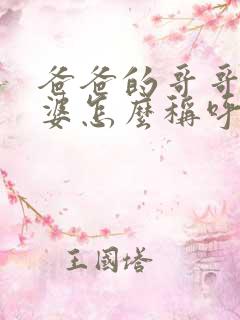 爸爸的哥哥
婆怎麼稱呼
王國塔